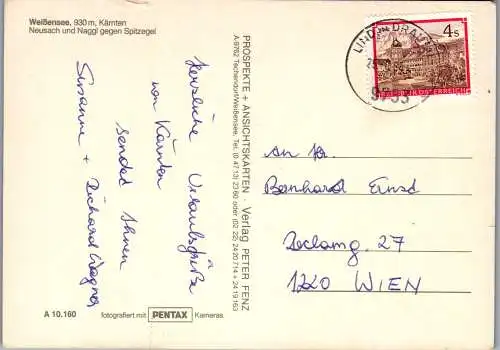 Weißensee, 930 m, Kärnten
Neusach und Naggl gegen Spitzegel
Herzliche Urlaubsgrüße
von Kärnten
sendet Ihnen
Susanne + Richard Wagner
A 10.160
fotografiert mit PENTAX Kameras
PROSPEKTE + ANSICHTSKARTEN · Verlag PETER FENZ
A-9762 Techendorf/Weißensee, Tel. (0 47 13) 23 60 oder (02 22) 24 20 714 + 24 19 163
4 S
REPUBLIK ÖSTERREICH
An Hr.
Bernhard Ernst
Reclamg. 27
1220 WIEN